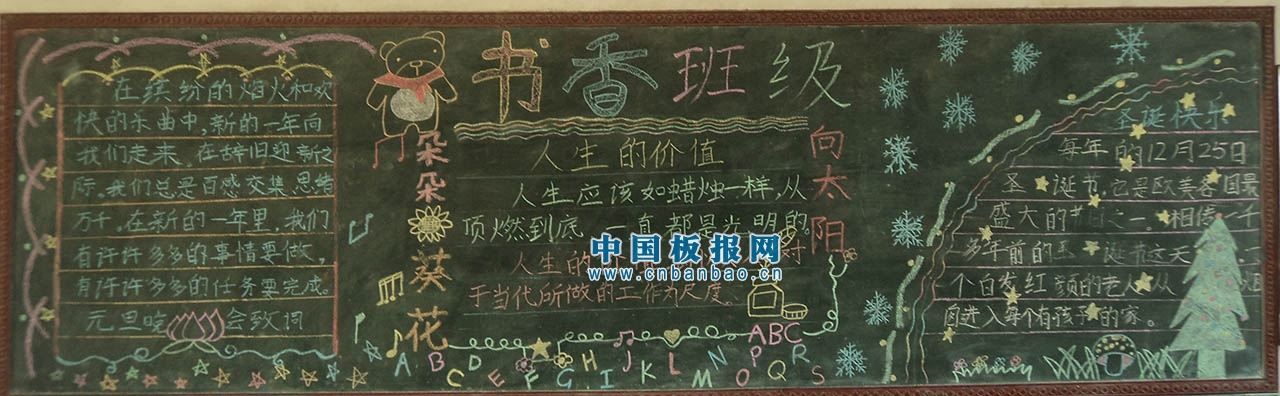 在缤纷的烟火和欢
快的乐曲中,新的一年向
我们走来,在辞旧迎新之
际,我们总是百感交集思绪
万千,在新的一年里,我们
有许许多多的事情要做,
有许许多多的任务要完成。
元旦晚会致词
朵朵葵花
书香班级
人生的价值
人生应该如蜡烛一样,从
顶燃到底,一直都是光明的。
人生的
对
于当代所做的工作为尺度。
向太阳
中国板报网
www.cnbanbao.cn
ABC
A B C D E F G H I J K L M N O P Q R S
圣诞快乐
每年的12月25日
圣诞节,它是欧美各国最
盛大的节日之一。相传一千
多年前的圣诞节这天
个白发红颜的老人从
囱进入每个有孩子的家。